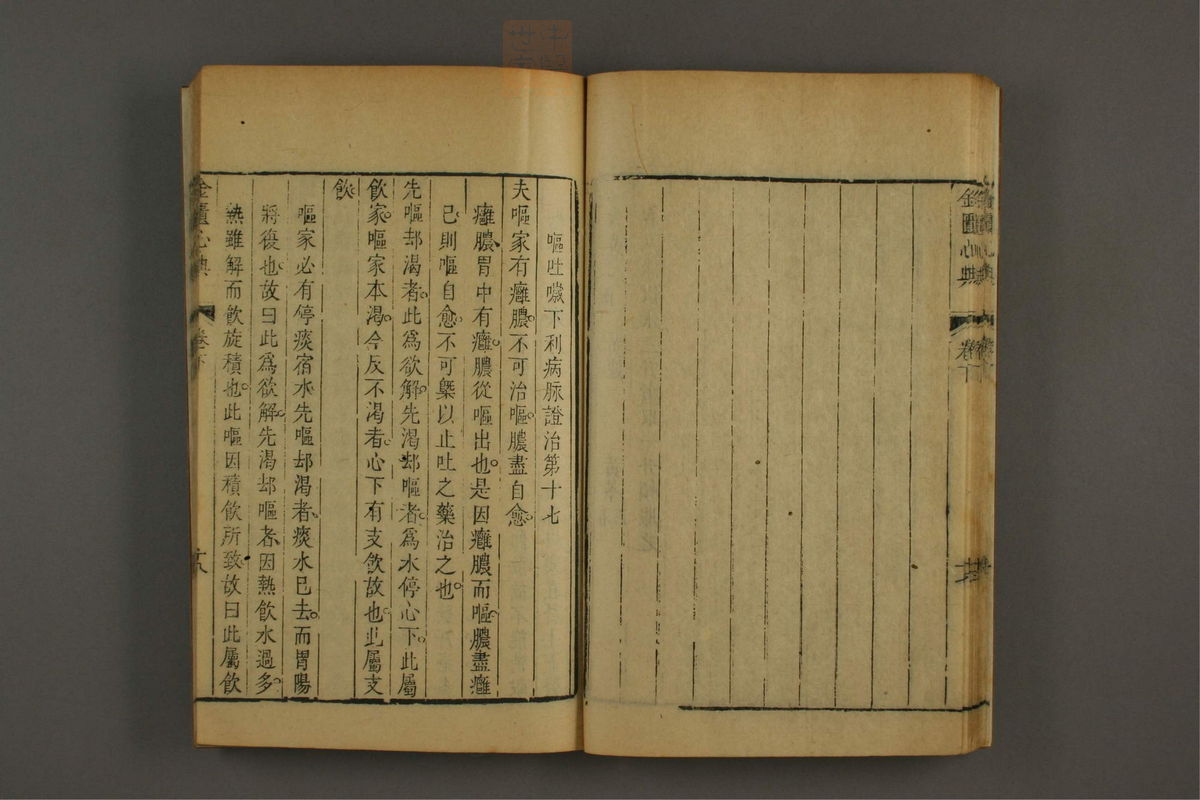 金匱心典
卷下
嘔吐噦下利病脉證治第十七
夫嘔家有癰膿。不可治嘔。膿盡自愈。
癰膿。胃中有癰。膿從嘔出也。是因癰膿而嘔。膿盡癰
已。則嘔自愈。不可槩以止吐之藥治之也。
先嘔却渴者。此爲欲解。先渴却嘔者。爲水停心下。此屬
飲家。嘔家本渴。今反不渴者。心下有支飲故也。此屬支
飲。
嘔家必有停痰宿水。先嘔却渴者。痰水已去。而胃陽
將復也。故曰此爲欲解。先渴却嘔者。因熱飲水過多。
熱雖解而飲旋積也。此嘔因積飲所致。故曰此屬飲
金匱心典
卷下
十八